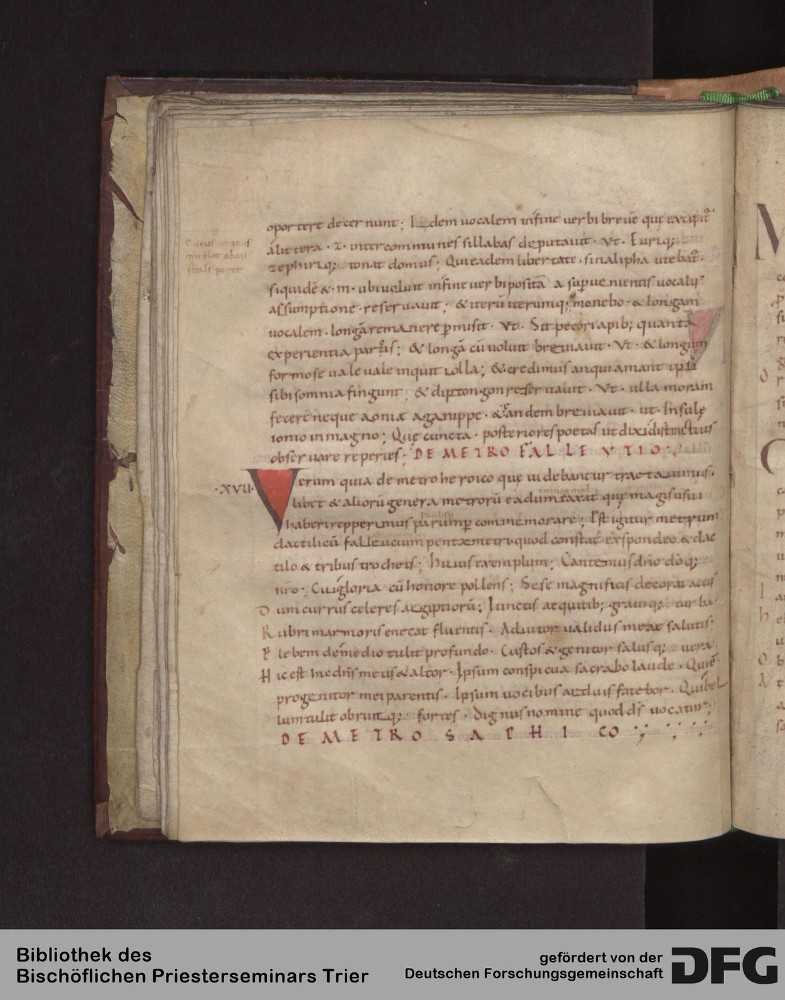 oportere decernunt; Idem uocalem in fine uerbi breuē quę excipit᷒
á littera · z · inter communes sillabas deputauit · Vt · Eurіq;
zephiriq; tonat domus; Qui eadem libertate · sinalipha ute bat᷒
siquidē & · m · ubi uoluit in fine uerbi posita a superuenientis uocalis
assumptione · reseruauit; & iterū iterumq; monebo · & longam
uocalem · longā remanere ꝑmisit · Vt · Stt pecori apib; quanta
experientia parcis; & longā cū uoluit breuiauit · Vt · & longum
formose uale uale inquit iolla; & credimus an qui amant ipsi
sibi somnia fingunt; & diptongon reseruauit · Vt · ulla moram
fecere neque aoniæ aganippe · & eandem breuiauit · ut · Insulę
ionio in magno; Quę cuncta · posteriores poetas ut dixi distinctius
obseruare reperies; DE METRO FALLEVTIO
·XVII· Verum quia de metro heroico quę uidebantur tractauimus ·
libet & aliorū genera metrorū eadumtaxat quę magis usui
haberi repperimus parumꝑ commemorare; Est igitur metrum
dactilicū falleucium pentametrū · quod constat ex spondeo & dac
tilo & tribus trocheis; huius exemplum; Cantemus dn̄o dōq;
nr̄o · Cui gloria cū honore pollens; Sese magnificis decorat actis
Dum currus celeres aegiptiorū; Iunctis aequitib; grauiq; turba
Rubri marmoris enecat fluentis · Adiutor ualidus meae salutis ·
Plebem de medio tulit profundo · Custos & genitor salusq; uera
Hic est · In dn̄s meus & altor · Ipsum conspicua sacrabo laude · Quiē
progenitor mei parentis · Ipsum uocibus arduis fatebor · Qui bel
lum tulit obruitq; fortes · Dignus nomine quod ds̄ uocatur;
DE METRO SAPHICO
Bibliothek des
Bischöflichen Priesterseminars Trier
gefördert von der
Deutschen Forschungsgemeinschaft
DFG